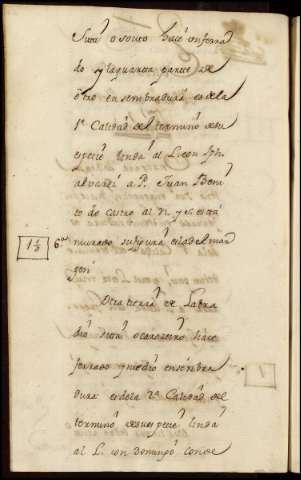 Sutu o souto hace un ferra
do y la quarta parte de
otro en sembradura es de la
1ª Calidad del termino de su
especie linda al L. con Jph.
alvarez a P. Juan Beni
to de castro al N. y S. esta
murado su figura es la del mar
gen
Otra tierra de Labra
dio hace
ferrado y medio en sembra
dura es de la 2ª Calidad del
termino de su especie linda
al L. con Domingo Conde
1 1/2
6ªˢ
1